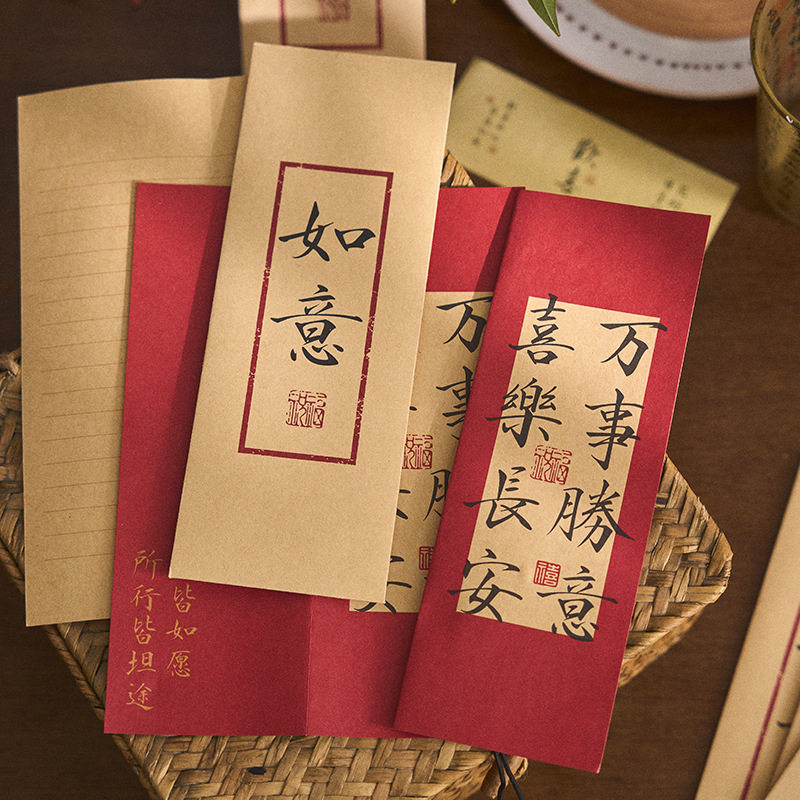 如意
万事勝意
喜樂長安
万事
皆如愿
所行皆坦途
禧